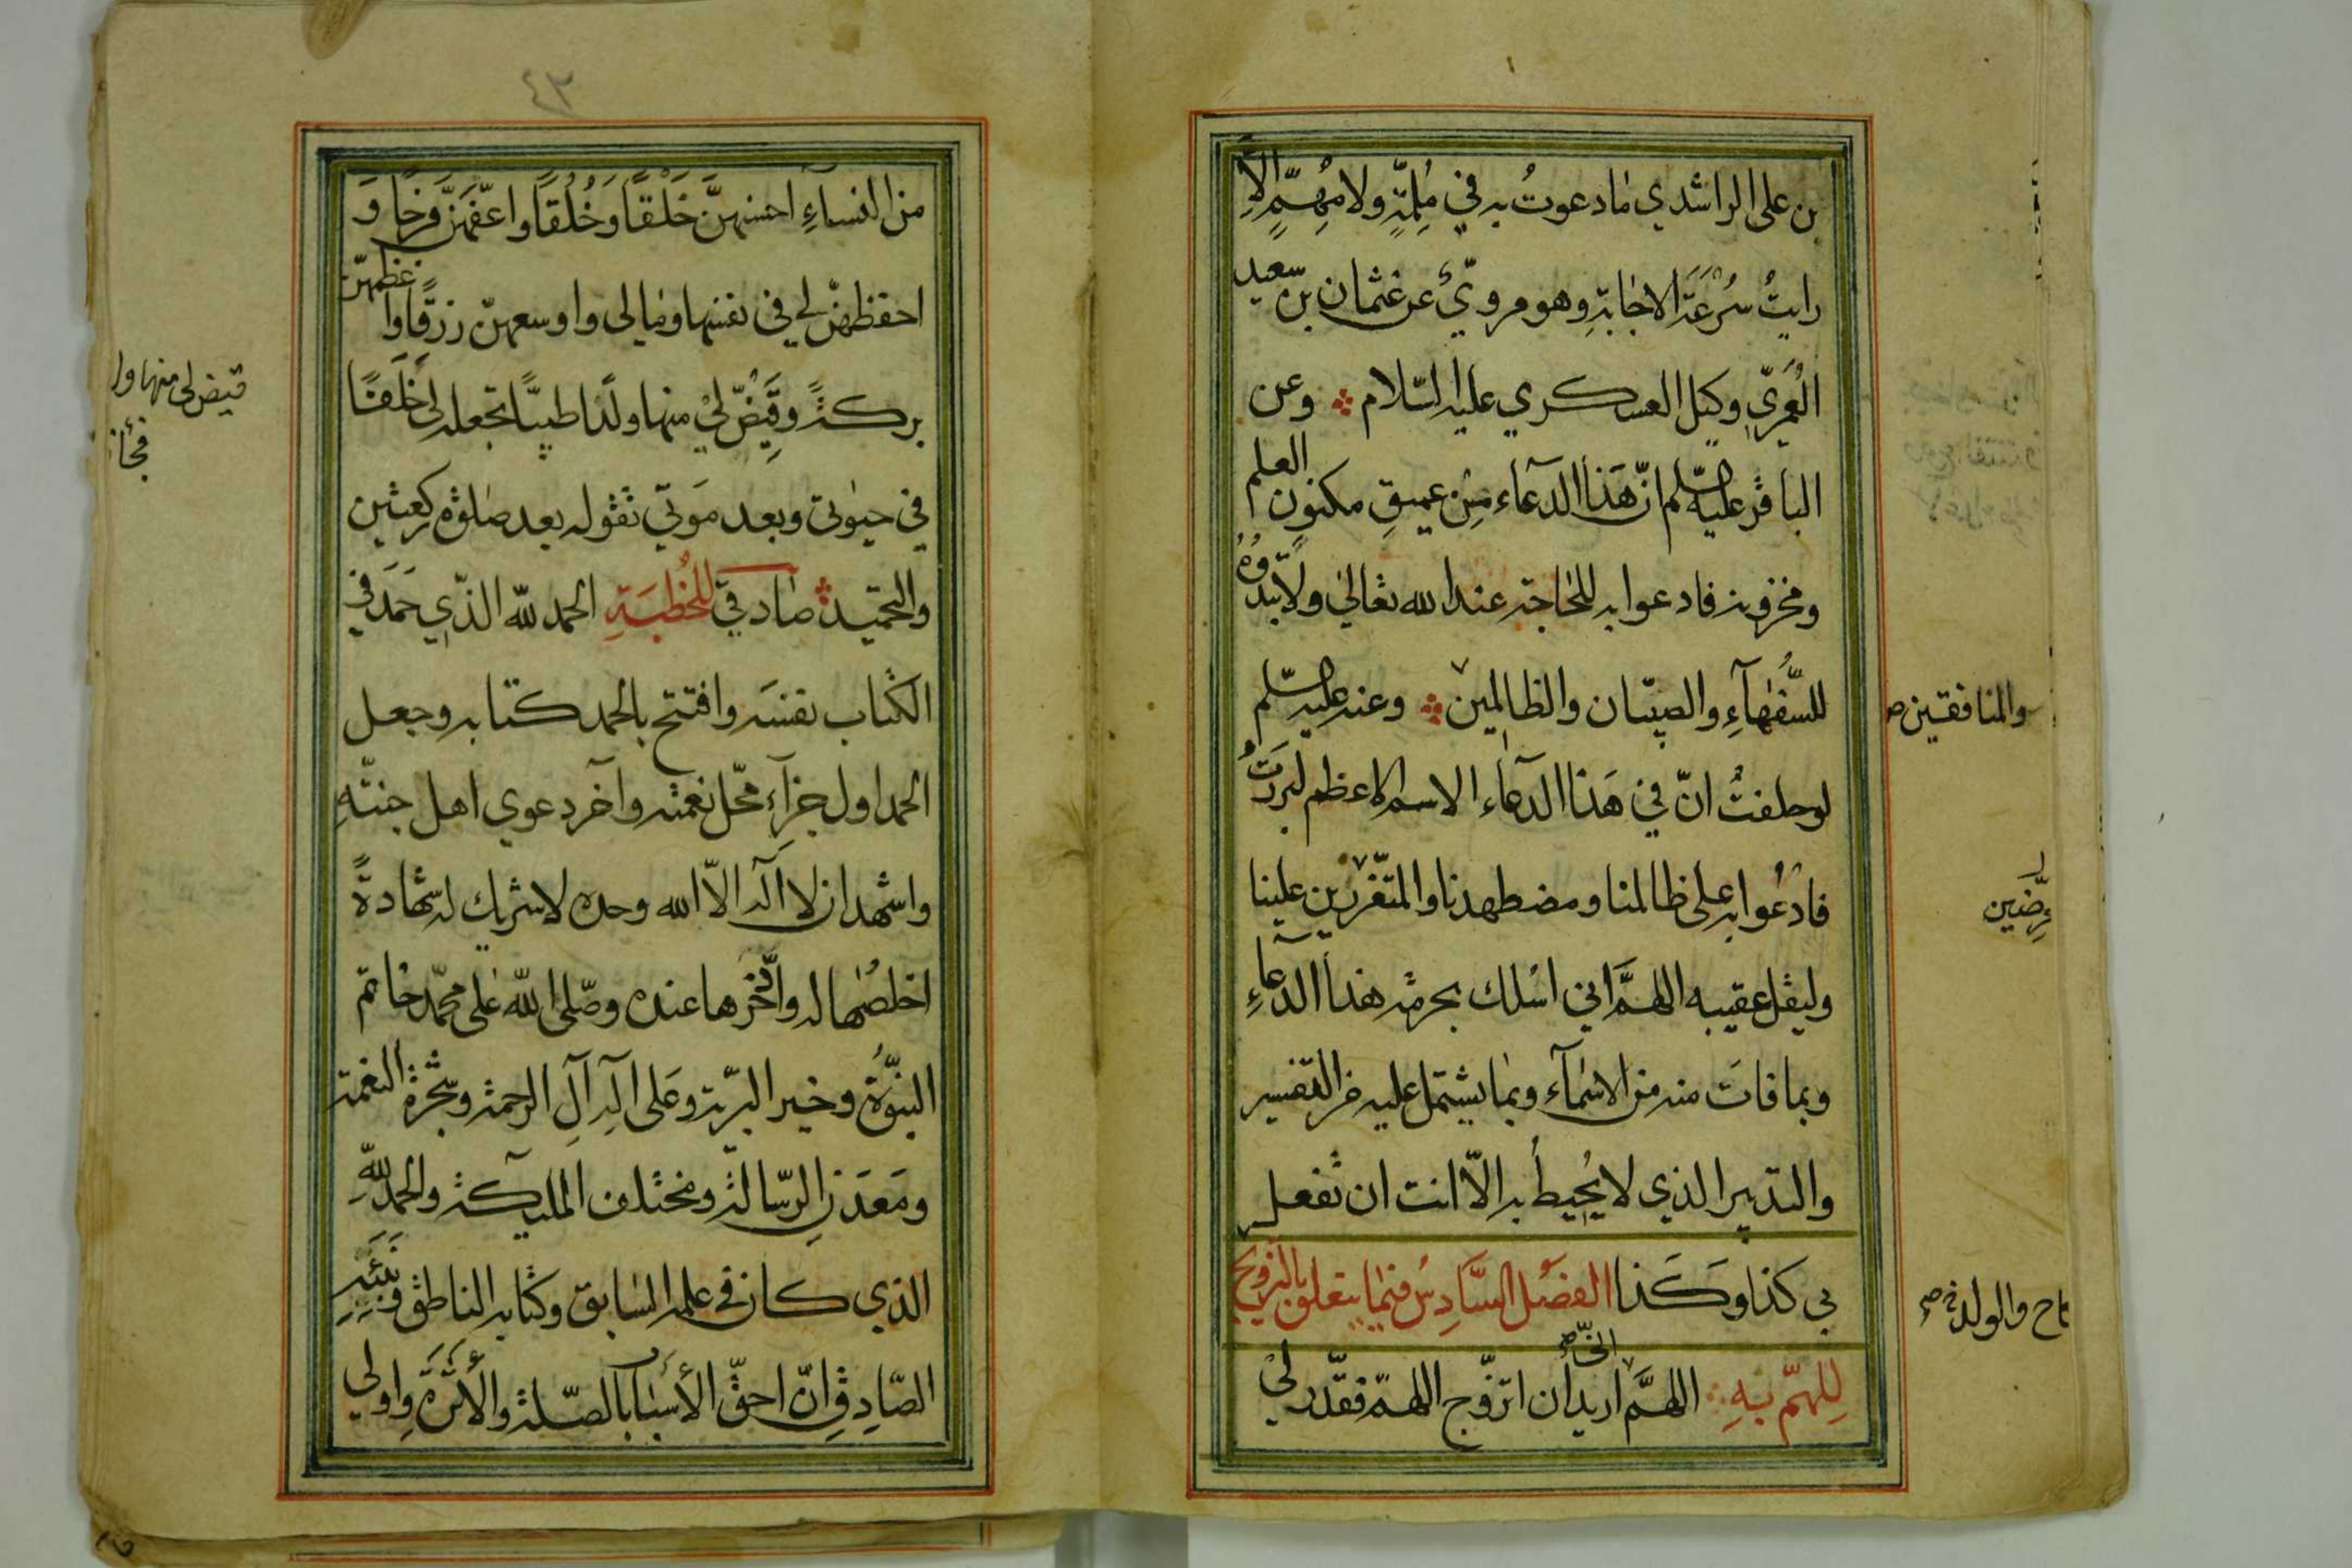 بن علي الراشدي مادعوتُ به في مُلِمَّةٍ ولا مُهِمٍّ الّا
رايتُ سُرْعَةَ الاجابةِ وهو مرويّ عن عثمان بن سعيد
العَمريّ وكيل العسكري عليه السّلام وعن
الباقر عليه السّلم انّ هَذا الدعآء مِن عميقِ مكنونِ العلم
ومخزونه فادعوا به للحاجة عند الله تعالى ولا تبدوُهُ
للسُّفَهآءِ والصبيان والظالمين وعنه عليه السّلم
والمنافقين
لوحلفتُ انّ في هَذا الدعآء الاسم الاعظم لبررَتُ
فادعُوا به على ظالمنا ومضطهدنا والمتعزّزين علينا
وليقل عقيبه اللهمَّ اني اسْلك بحرمة هذا الدعآءِ
وبما فات منه من الاسمآء وبما يشتمل عليه من التفسير
والتدبير الذي لا يُحيطُ به الاّ انت ان تفعل
بي كذا وكَذا الفصل السَّادِسُ فيما يتعلق بالتزويج
كاح والولد
لِلهمّ بِهِ اللهمَّ انّي اريد ان اتزوّج اللهمّ فقدّر لي
٤٣
من النسآءِ احسنهنَّ خَلْقًا وَخُلُقًا واعفّهنّ فرجًا وَ
احفظهنّ لي في نفسها ومالي واوسعهنّ رزقًا واعظمهنّ
بركةً وقَيِّضْ لي منها ولدًا طيبًا تجعله لي خَلَفًا
قيض لي منها ولد
في حيوتي وبعد مَوتي تقوله بعد صلوة ركعتين
والتحميد صادقيّ للخُطبَةِ الحمد لله الذّي حَمَدَ في
الكتاب نفسَه وافتتح بالحمد كتابه وجعل
الحمد اول جزآء محلّ نعمته وآخر دعوي اهل جنّتهِ
واشهد ان لا اله الاّ الله وحده لا شريك له شهادةً
اخلصُها له وادّخرها عنده وصلّى الله على محمّد خاتم
النبوّة وخير البريّة وعَلى آلِه آلِ الرحمة وشجرة النعمة
ومَعدَنِ الرّسالة ومختلف المليكة والحمد للهِ
الذي كان في علمه السابق وكتابه الناطق
الصّادِقِ انّ احقّ الأسباب بالصّلة والأثَرَة واولي